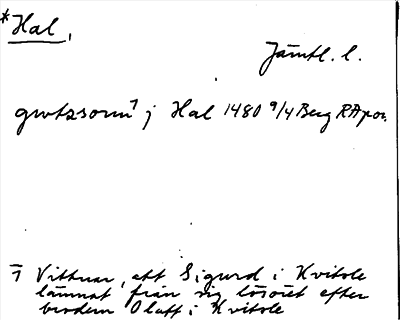 *Hal,
Jämtl. l.
gwtzsorm⁊ j Hal 1480 9/4 Berg RApor.
1) Vittnar, att Sigurd i Kvitsle
lämnat från sig lösöret efter
brodern Olaff i Kvitsle